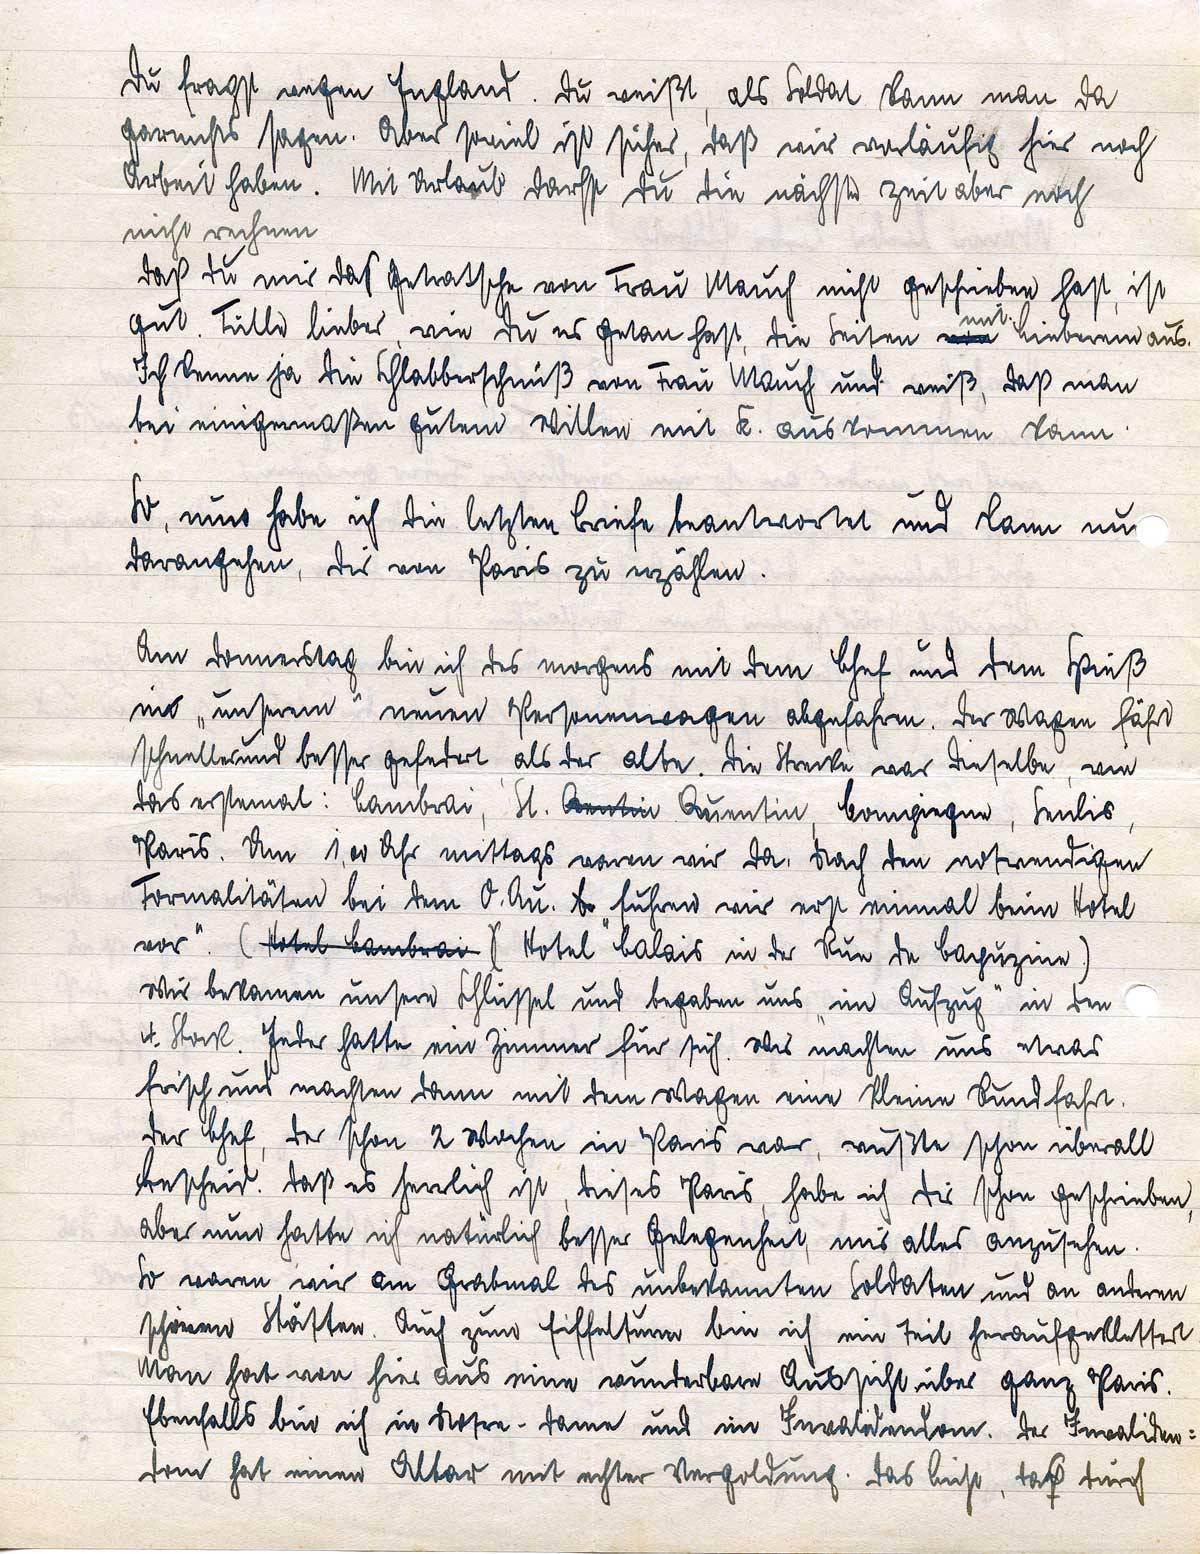 Du fragst wegen England. Du weißt, als Soldat kann man da
garnichts sagen. Aber soviel ist sicher, daß wir vorläufig hier noch
Arbeit haben. Mit Urlaub darfst Du die nächste Zeit aber noch
nicht rechnen
Daß Du mir das Getratsche von Frau Mauch nicht geschrieben hast, ist
gut. Fülle lieber, wie Du es getan hast, die Seiten mit Lieberem aus.
Ich kenne ja die Schlabberschnüß von Frau Mauch und weiß, daß man
bei einigermaßen gutem Willen mit K. auskommen kann.
So, nun habe ich die letzten Briefe beantwortet und kann nu
darangehen, Dir von Paris zu erzählen.
Am Donnerstag bin ich des morgens mit dem Chef und dem Spieß
in „unserem" neuen Personenwagen abgefahren. Der Wagen fährt
schneller und besser gefedert als der alte. Die Strecke war dieselbe, wie
das erstemal: Cambrai, St. Quentin, Compiegne, Senlis,
Paris. Um 1,00 Uhr mittags waren wir da. Nach den notwendigen
Formalitäten bei dem O. Qu. fuhren wir erst einmal beim Hotel
vor". (Hotel Calais in der Rue de Capuzine)
Wir bekamen unsere Schlüssel und begaben uns „im Aufzug" in den
4. Stock. Jeder hatte ein Zimmer für sich. Wir machten uns etwas
frisch und machten dann mit dem Wagen eine kleine Rundfahrt.
Der Chef, der schon 2 Wochen in Paris war, wußte schon überall
Bescheid. Daß es herrlich ist, dieses Paris, habe ich Dir schon geschrieben,
aber nun hatte ich natürlich besser Gelegenheit, mir alles anzusehen.
So waren wir am Grabmal des unbekannten Soldaten und an anderen
schönen Stätten. Auch zum Eiffelturm bin ich ein Teil heraufgeklettert
Man hat von hier aus eine wunderbare Aussicht über ganz Paris.
Ebenfalls bin ich in Notre-Dame und im Invalidendom. Der Invaliden=
dom hat einen Altar mit echter Vergoldung. Das Licht, das durch